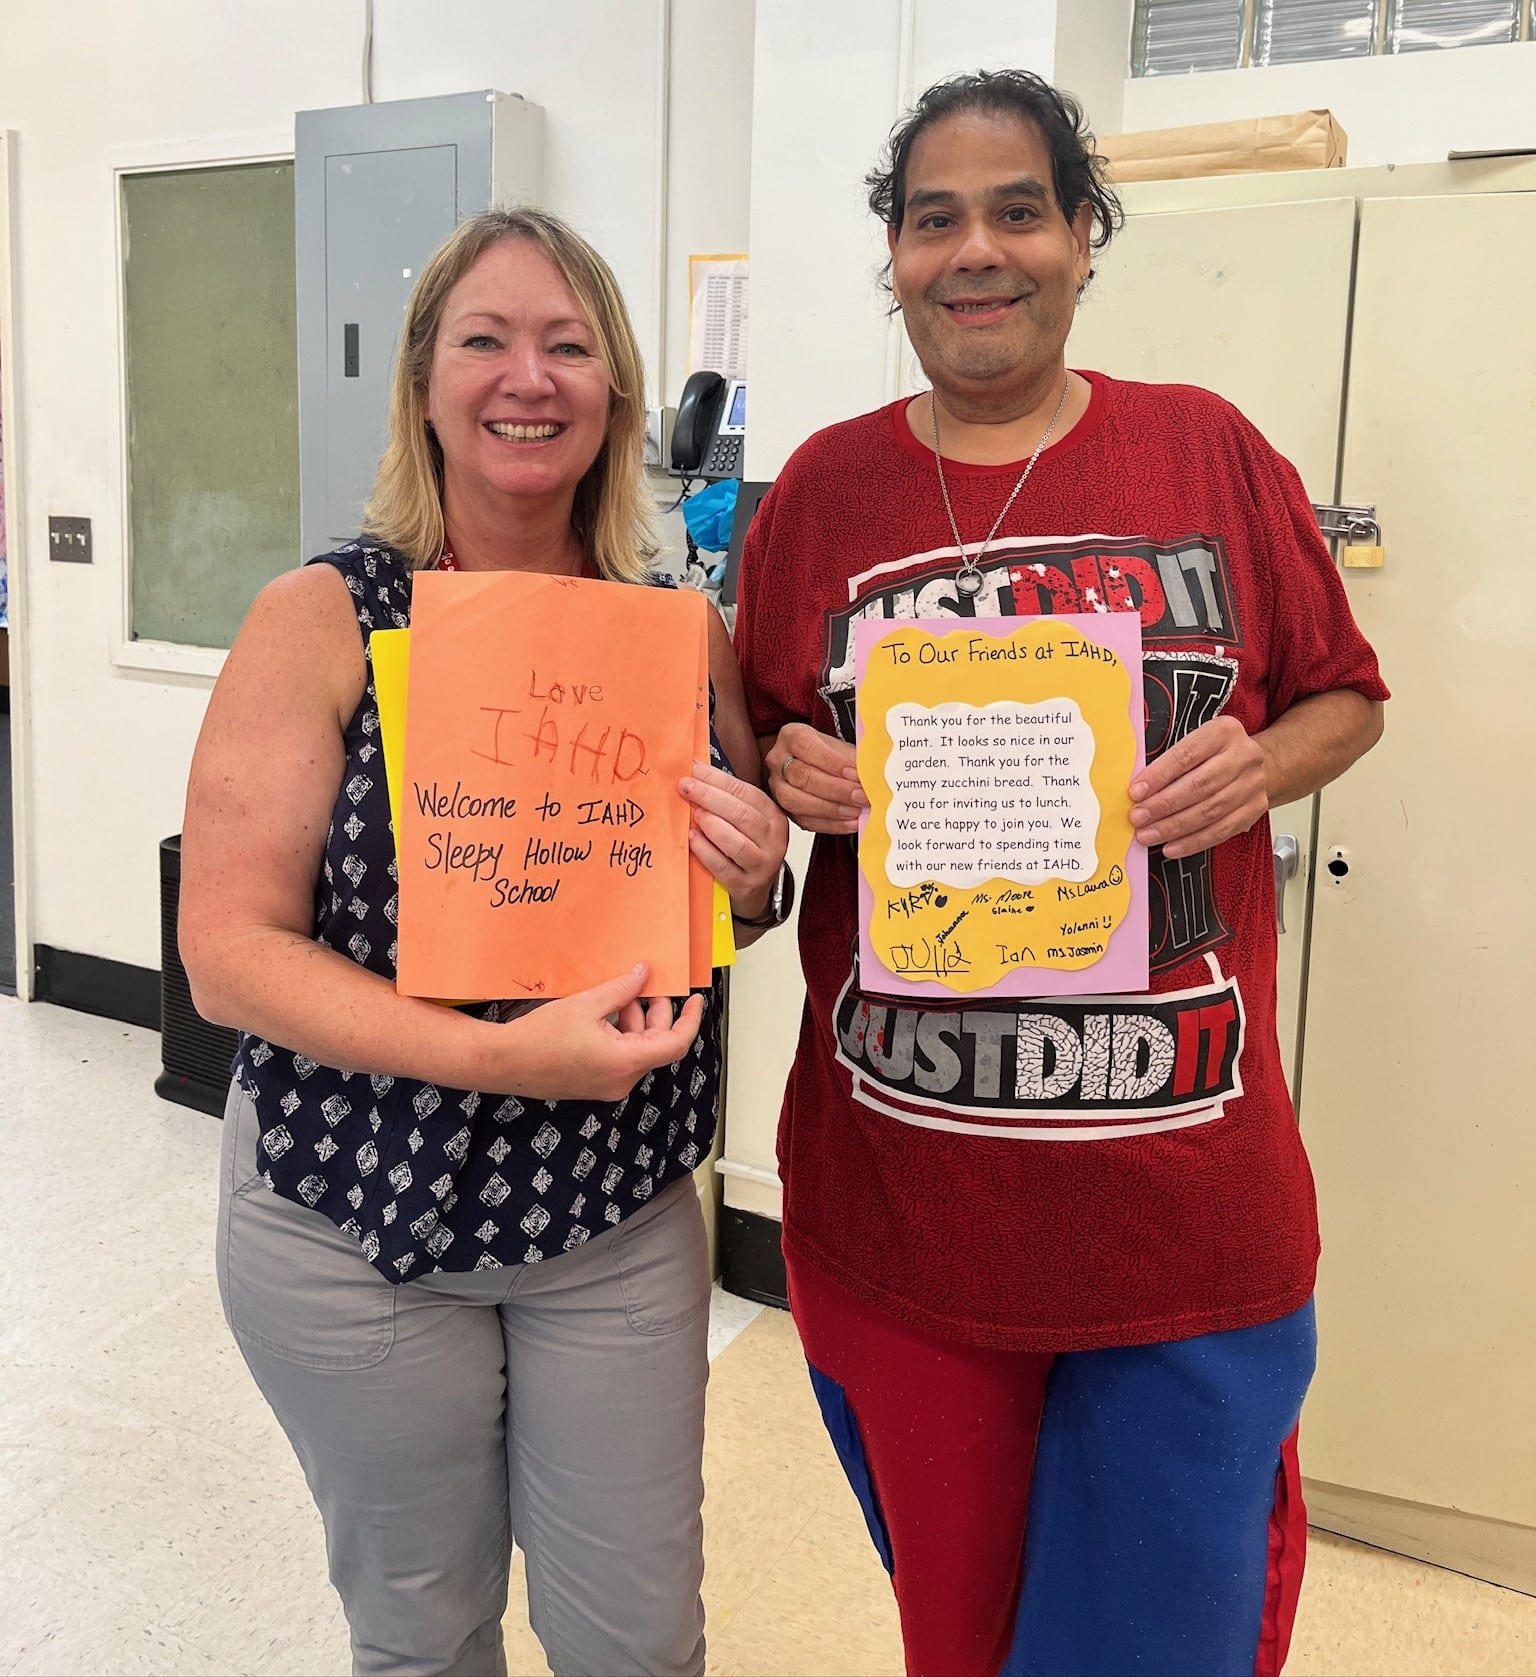 Love
IAHD
Welcome to IAHD
Sleepy Hollow High
School
To Our Friends at IAHD,
Thank you for the beautiful
plant. It looks so nice in our
garden. Thank you for the
yummy zucchini bread. Thank
you for inviting us to lunch.
We are happy to join you. We
look forward to spending time
with our new friends at IAHD.
Ms. Moore
Ms. Laura
Elaine
Johanna
Yolenni
Ian
Ms Jasmin
JUST DID IT
JUST DID IT